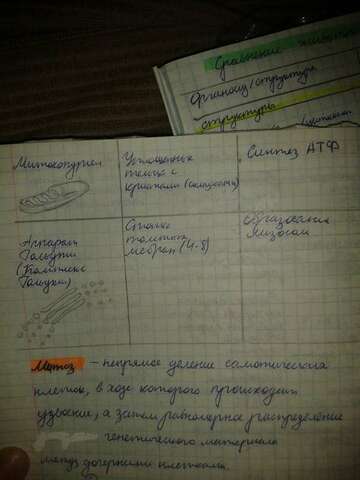 Сравнение
Органоид/структура
структуры
Митохондрии
Уплощенные
тельца с
кристами (складками)
Синтез АТФ
Аппарат
Гольджи
(Комплекс
Гольджи)
Стопка
мембран (4-8)
Образование
лизосом
Митоз - непрямое деление соматических
клеток, в ходе которого происходит
удвоение, а затем равномерное распределение
генетического материала
между дочерними клетками.